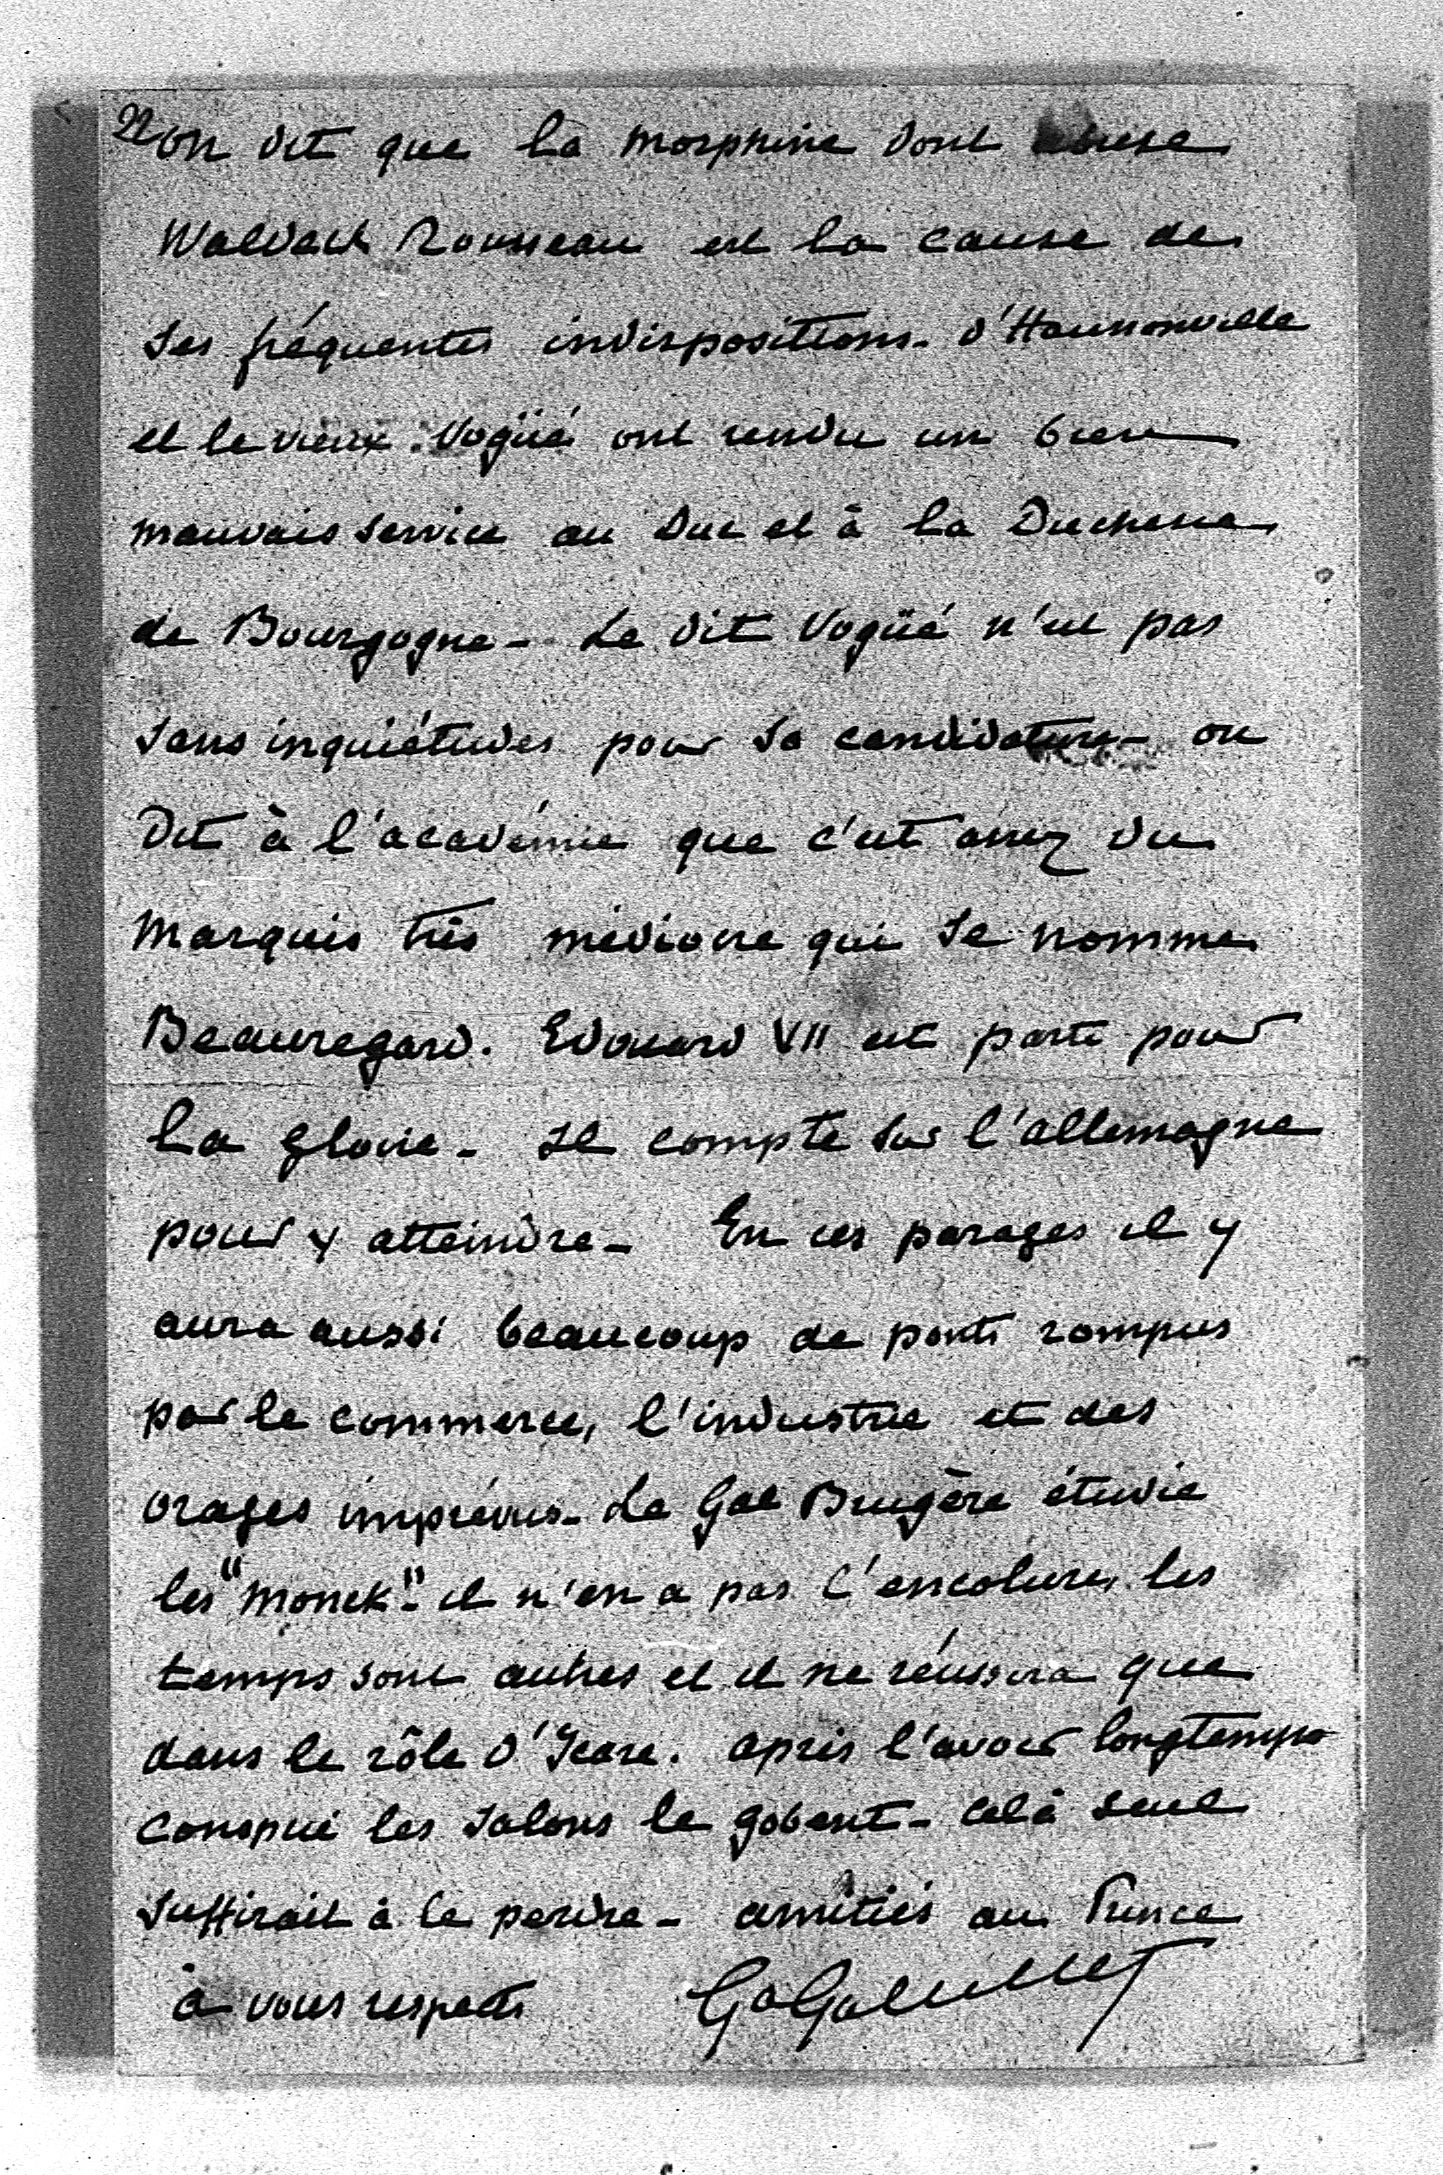 2 on dit que la morphine dont abuse
Waldeck Rousseau est la cause de
ses fréquentes indispositions - d'Haussonville
et le vieux Vogüé ont rendu un bien
mauvais service au Duc et à la Duchesse
de Bourgogne - Le dit Vogüé n'est pas
sans inquiétudes pour sa candidature - on
Dit à l'académie que c'est assez du
Marquis très médiocre qui se nomme
Beauregard. Edouard VII est parti pour
la gloire - Il compte sur l'allemagne
pour y atteindre - En ces parages il y
aura aussi beaucoup de ponts rompus
par le commerce, l'industrie et des
orages imprévus - Le Gal Brugère étudie
les "Monck" - il n'en a pas l'encolure, les
temps sont autres et il ne réussira que
dans le rôle d'Icare. après l'avoir longtemps
conspué les salons le gobent - celà seul
suffirait à le perdre - amitiés au Prince
à vous respects GaGalliffet